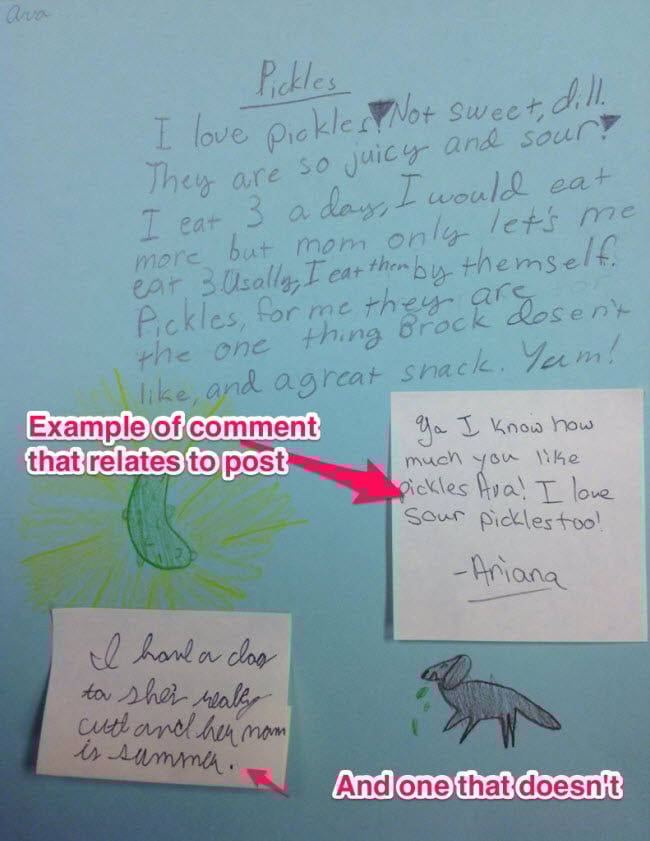 Ava
Pickles
I love pickles! Not sweet, dill.
They are so juicy and sour!
I eat 3 a day, I would eat
more but mom only let's me
eat 3. Usally, I eat them by themself.
Pickles, for me they are
the one thing Brock dosen't
like, and a great snack. Yum!
Example of comment
that relates to post
Ya I know how
much you like
pickles Ava! I love
sour pickles too!
-Ariana
I have a dog
to she's really
cute and her nam
is summer.
And one that doesn't